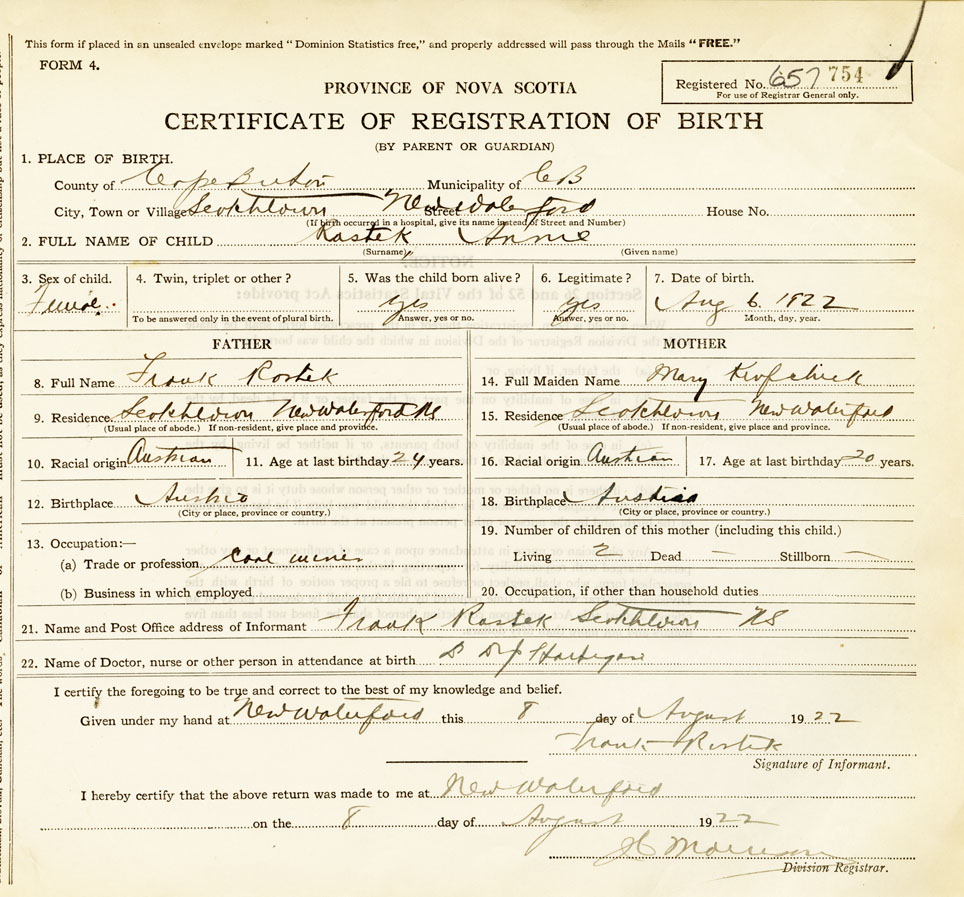 This form if placed in an unsealed envelope marked "Dominion Statistics free," and properly addressed will pass through the Mails "FREE."
FORM 4.
Registered No. 657 754
For use of Registrar General only.
PROVINCE OF NOVA SCOTIA
CERTIFICATE OF REGISTRATION OF BIRTH
(BY PARENT OR GUARDIAN)
1. PLACE OF BIRTH.
County of Cape Breton Municipality of CB
City, Town or Village Scotchtown Street New Waterford House No.
(If birth occurred in a hospital, give its name instead of Street and Number)
2. FULL NAME OF CHILD Rostek Annie
(Surname) (Given name)
3. Sex of child. 4. Twin, triplet or other? 5. Was the child born alive? 6. Legitimate? 7. Date of birth.
Female. yes yes Aug 6. 1922
To be answered only in the event of plural birth. Answer, yes or no. Answer, yes or no. Month, day, year.
FATHER MOTHER
8. Full Name Frank Rostek 14. Full Maiden Name Mary
9. Residence Scotchtown New Waterford NS 15. Residence Scotchtown New Waterford
(Usual place of abode.) If non-resident, give place and province. (Usual place of abode.) If non-resident, give place and province.
10. Racial origin Austrian 11. Age at last birthday 24 years. 16. Racial origin Austrian 17. Age at last birthday 20 years.
12. Birthplace Austria 18. Birthplace Austria
(City or place, province or country.) (City or place, province or country.)
19. Number of children of this mother (including this child.)
13. Occupation:—
(a) Trade or profession coal miner Living 2 Dead — Stillborn —
(b) Business in which employed 20. Occupation, if other than household duties
21. Name and Post Office address of Informant Frank Rostek Scotchtown NS
22. Name of Doctor, nurse or other person in attendance at birth Hartigan
I certify the foregoing to be true and correct to the best of my knowledge and belief.
Given under my hand at New Waterford this 8 day of August 1922
Frank Rostek
Signature of Informant.
I hereby certify that the above return was made to me at New Waterford
on the 8 day of August 1922
Morrison
Division Registrar.